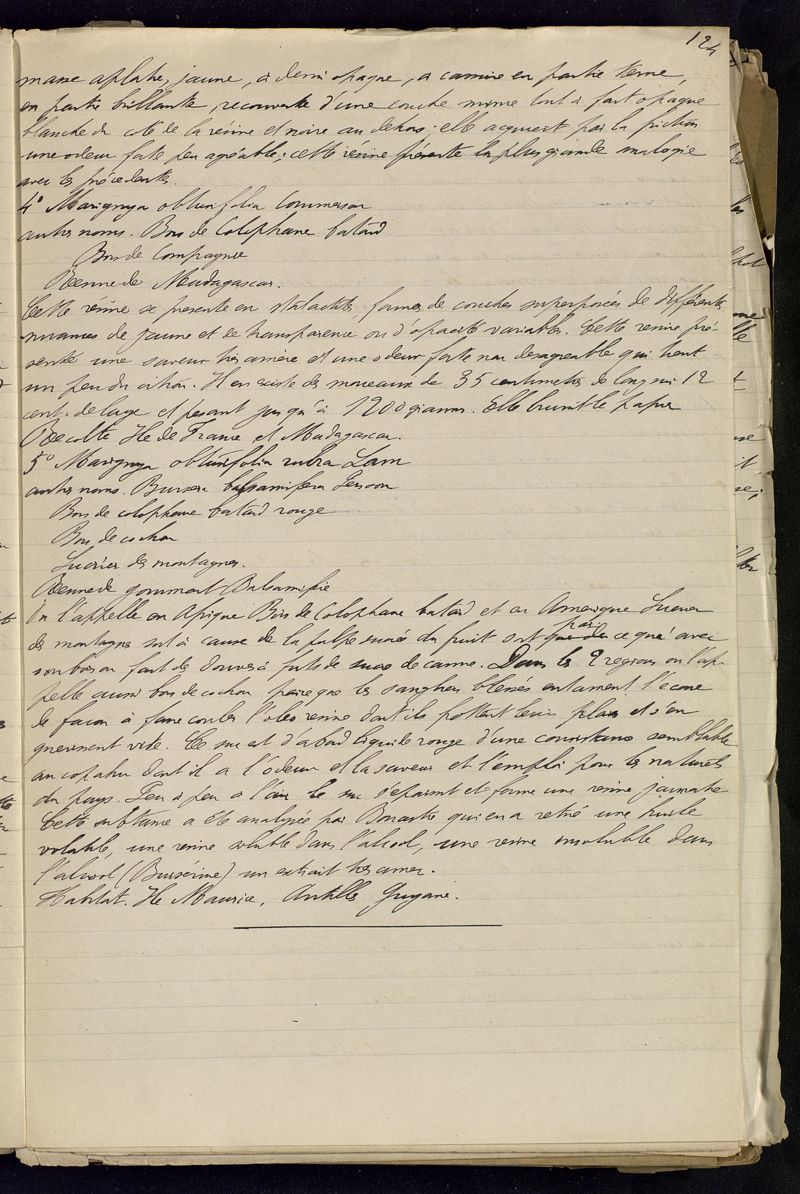 124
masse aplatie, jaune, à demi opaque, à cassure en partie terne,
en partie brillante, recouverte d'une couche mince tout à fait opaque
blanche du coté de la résine et noire au dehors; elle acquiert par la friction
une odeur forte peu agréable; cette résine présente la plus grande analogie
avec les précédentes.
4° Marignya obtusifolia Commerson
autres noms. Bois de Colophane batard
Bois de Compagnie
Résine de Madagascar.
Cette résine se présente en stalactites formées de couches superposées de différentes
nuances de jaune et de transparence ou d'opacité variables. Cette résine pré
sente une saveur très amère et une odeur forte non désagréable qui tient
un peu du citron. Il en existe des morceaux de 35 centimètres de long sur 12
cent. de large et pesant jusqu'à 1200 grammes. Elle brunit le papier
Récolte Ile de France et Madagascar.
5° Marignya obtusifolia rubra Lam
autres noms. Bursera balsamifera Persoon
Bois de colophane batard rouge
Bois de cochon
Sucrier des montagnes.
Résine de gommart Balsamifié
On l'appelle en Afrique Bois de Colophane batard et en Amérique Sucrier
des montagnes soit à cause de la pulpe sucrée du fruit soit par ce que avec
son bois on fait des douves à futs de sucre de canne. Dans les 2 régions on l'ap-
pelle aussi bois de cochon parce que les sangliers blessés entament l'écorce
de façon à faire couler l'oléo résine dont ils frottent leurs plaies et s'en
guérissent vite. Ce suc est d'abord liquide rouge d'une consistance semblable
au copahu dont il a l'odeur et la saveur et l'emploi pour les naturels
du pays. Peu à peu à l'air le suc s'épaissit et forme une résine jaunatre
Cette substance a été analysée par Bonastre qui en a retiré une huile
volatile, une résine soluble dans l'alcool, une résine insoluble dans
l'alcool (Burserine) un extrait très amer.
Habitat. Ile Maurice, Antilles Guyane.